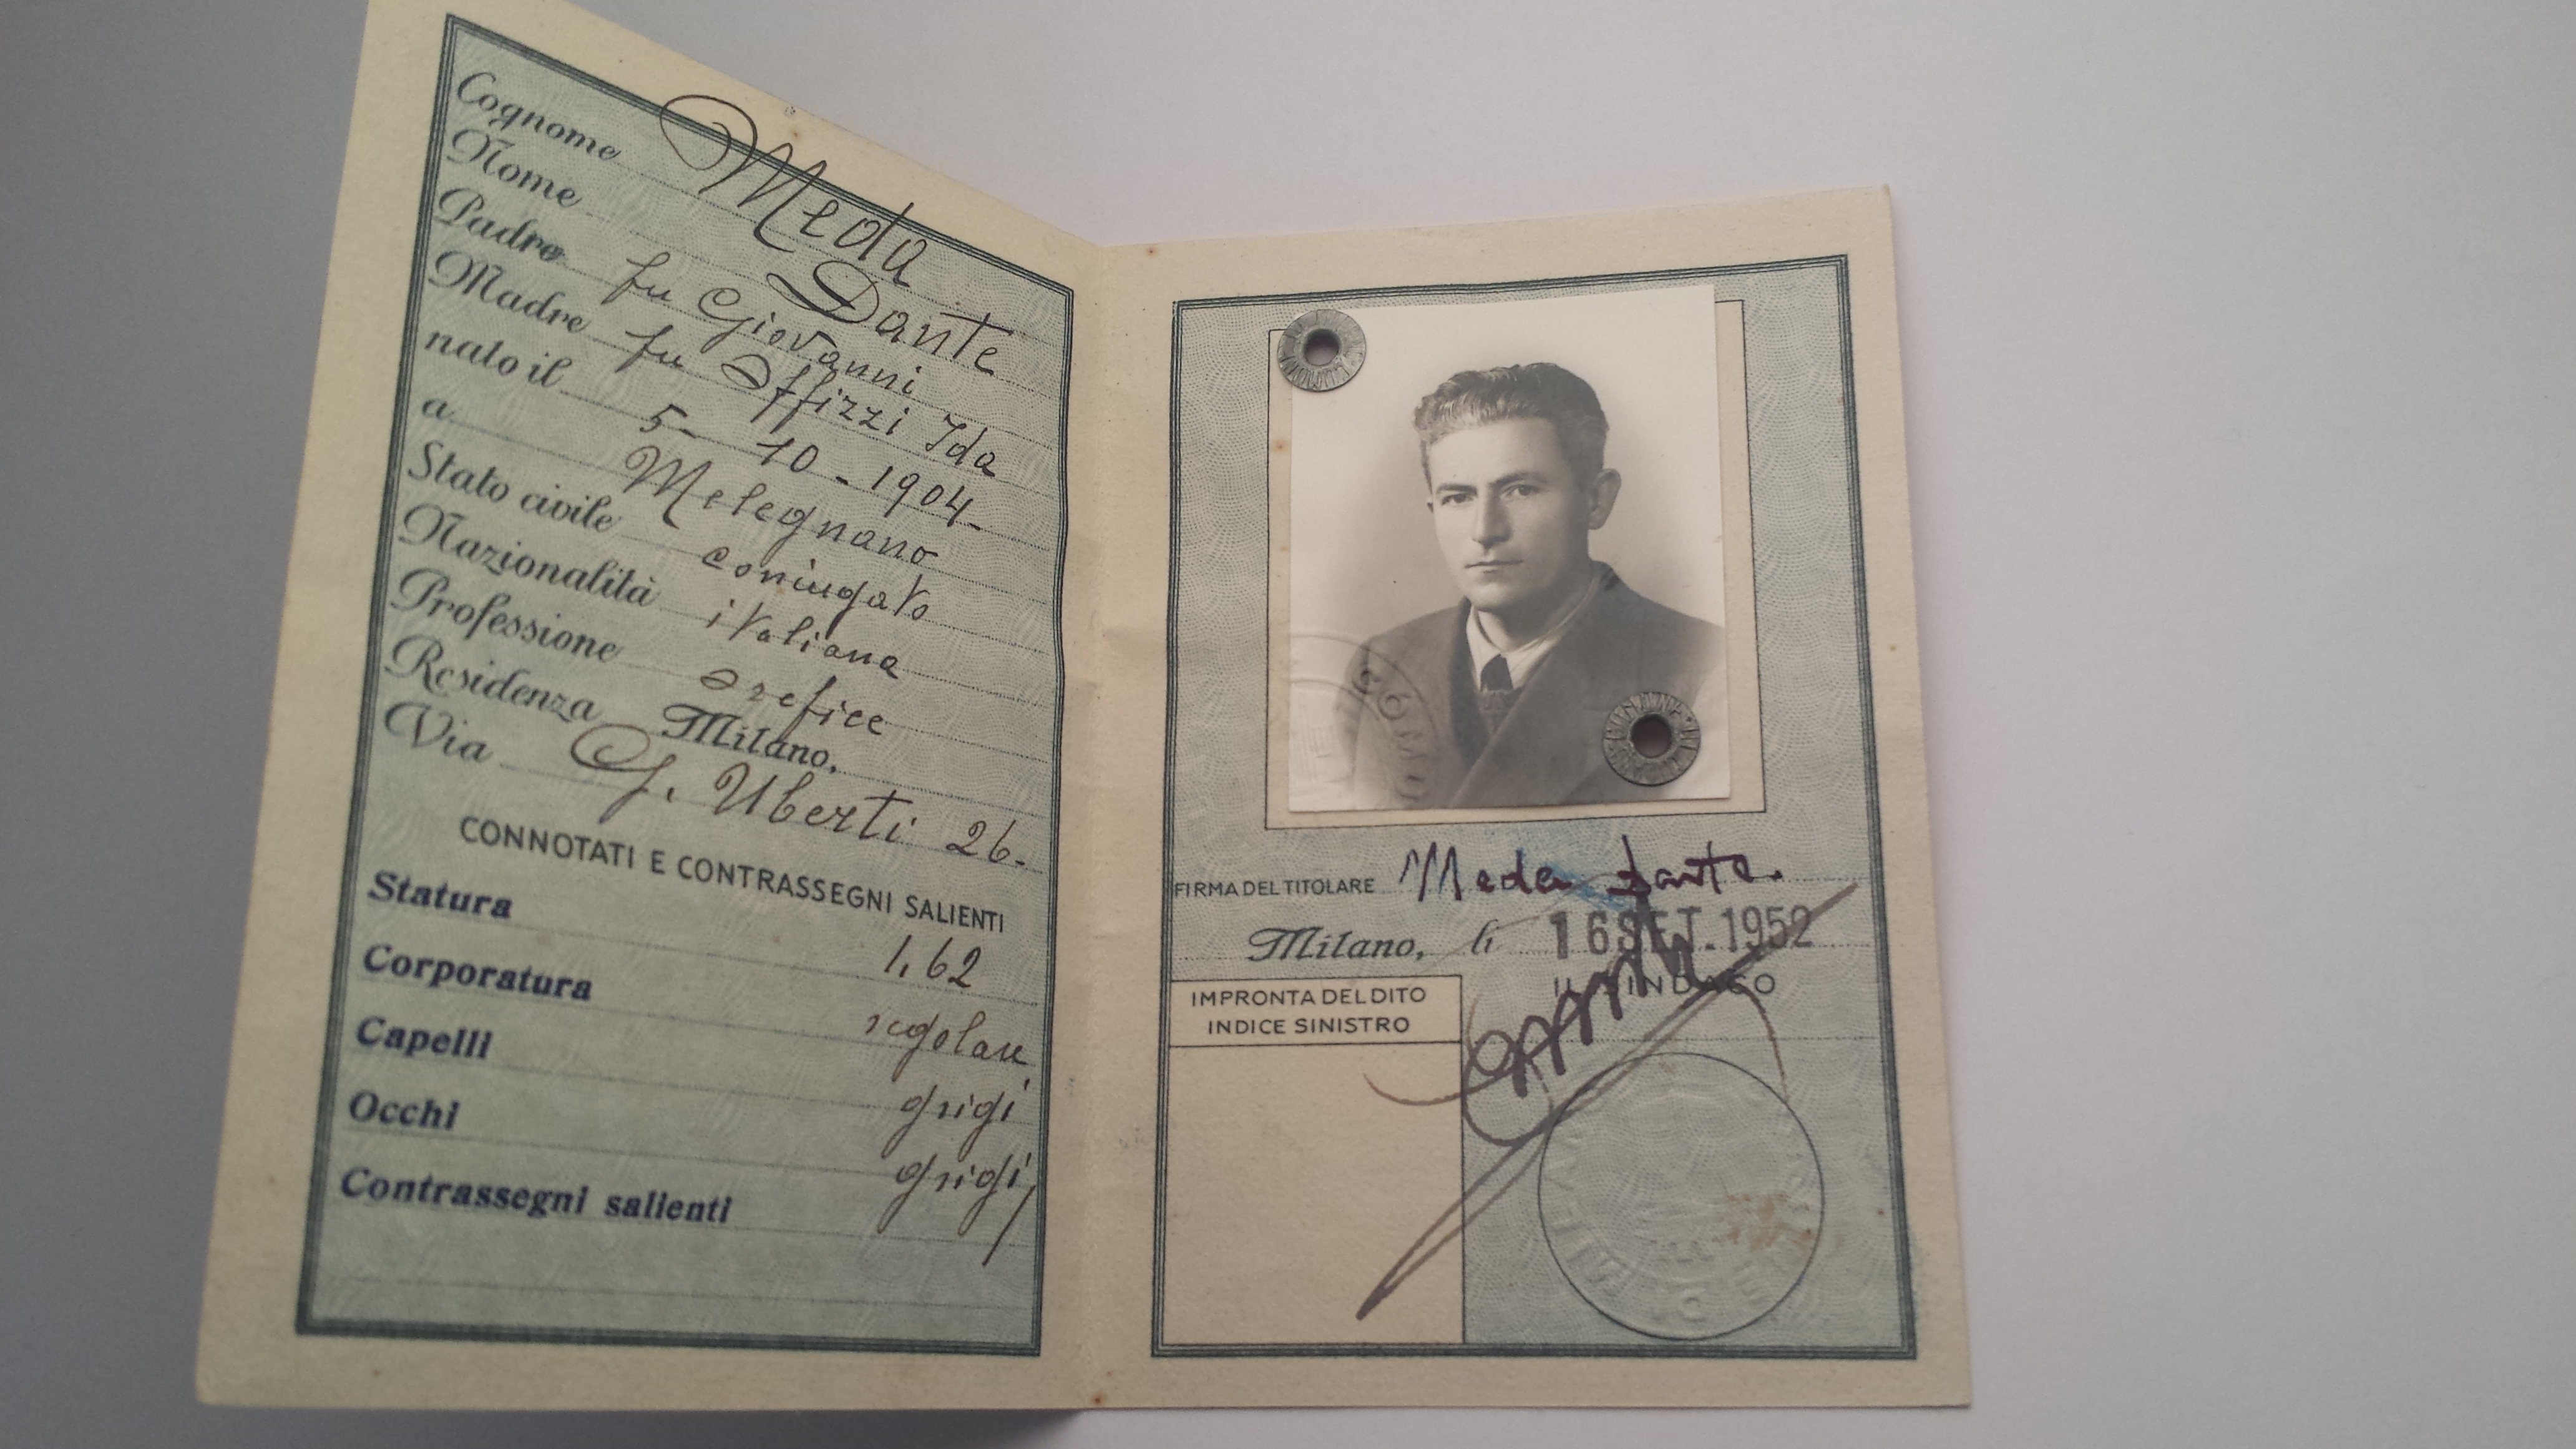 Cognome Meda
Nome Dante
Padre fu Giovanni
Madre fu Offizzi Ida
nato il 5-10-1904-
a Melegnano
Stato civile coniugato
Nazionalità italiana
Professione orefice
Residenza Milano.
Via G. Uberti 26-
CONNOTATI E CONTRASSEGNI SALIENTI
Statura 1,62
Corporatura regolare
Capelli grigi
Occhi grigi
Contrassegni salienti
COMU
FIRMA DEL TITOLARE Meda Dante.
Milano, li 16 SET. 1952
IL SINDACO
IMPRONTA DEL DITO
INDICE SINISTRO